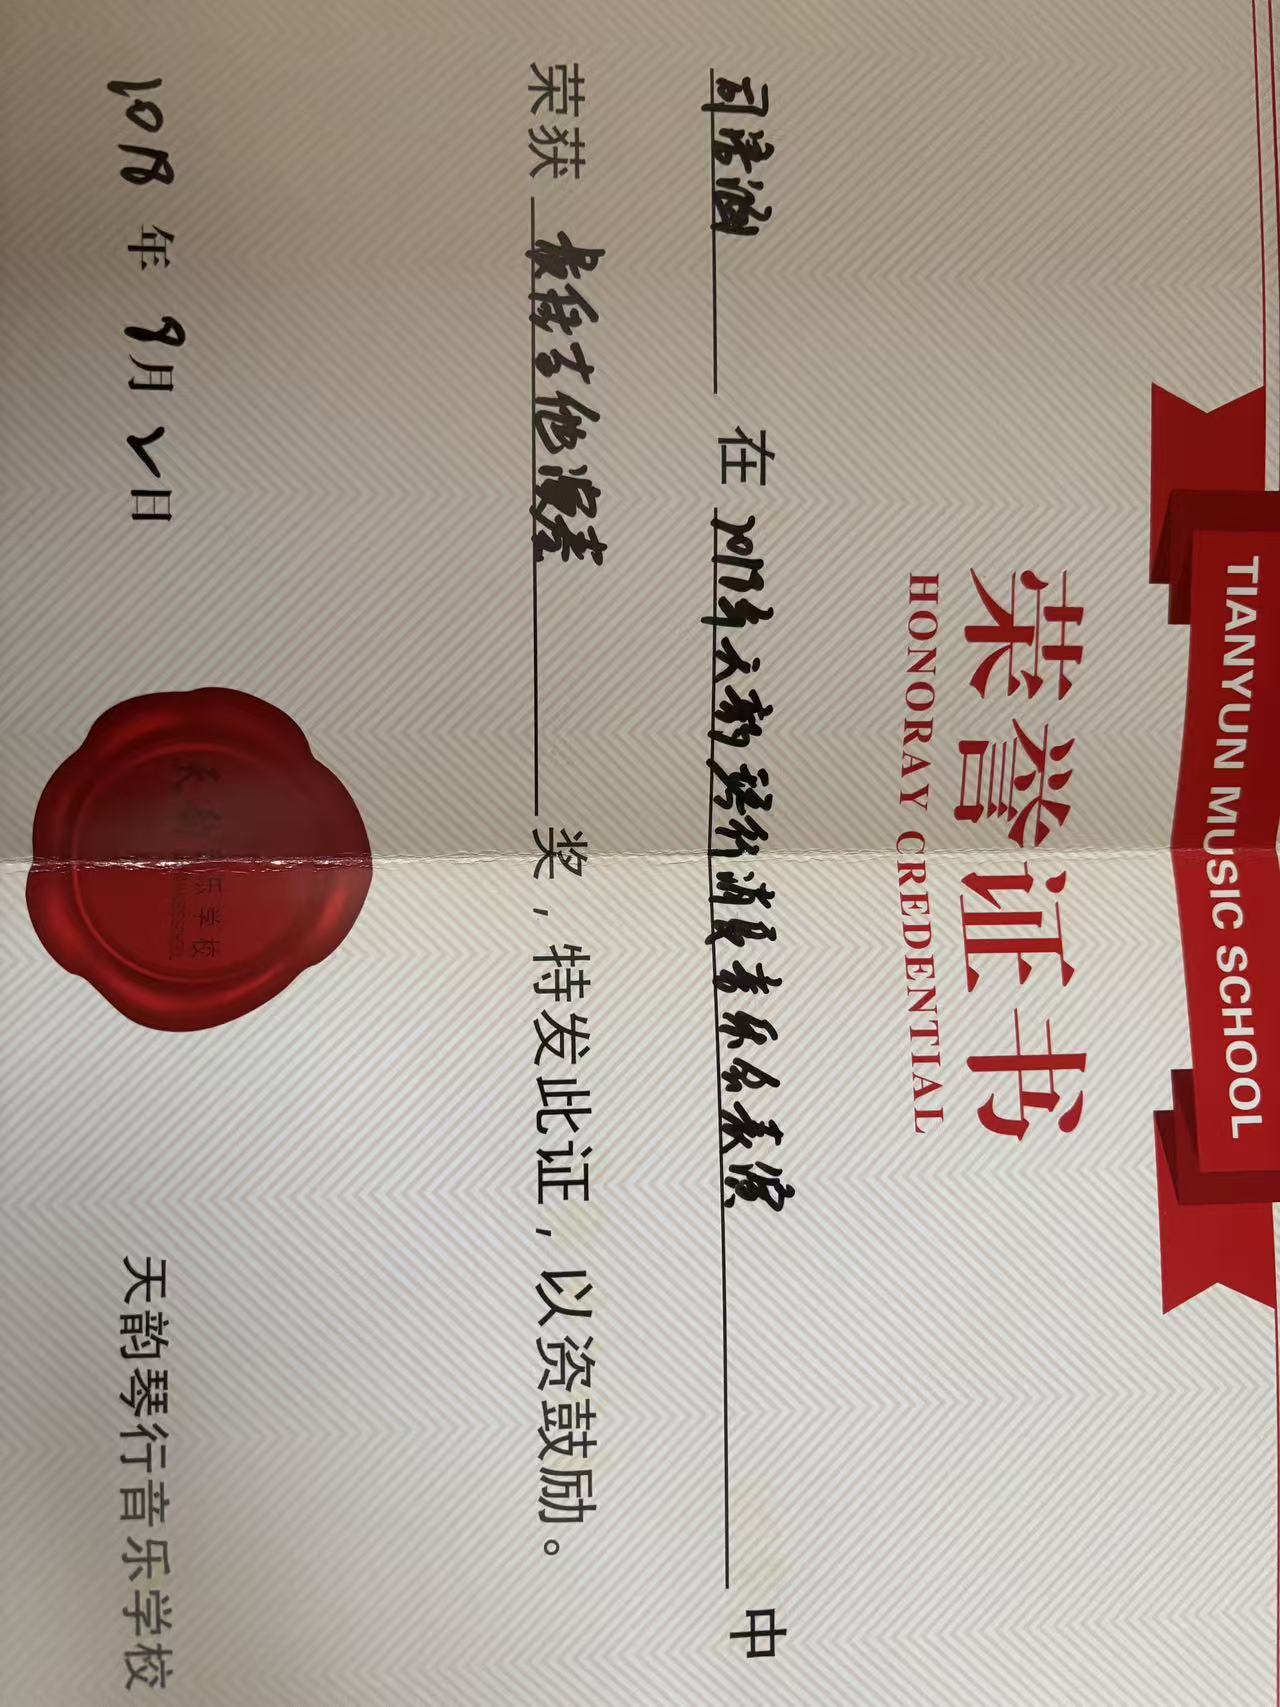 TIANYUN MUSIC SCHOOL
荣誉证书
HONORAY CREDENTIAL
司浩涵 在 2018年天韵琴行消夏音乐会表演 中
荣获 最佳吉他演奏 奖，特发此证，以资鼓励。
2018 年 9 月 2 日
天韵琴行音乐学校
天韵音乐学校